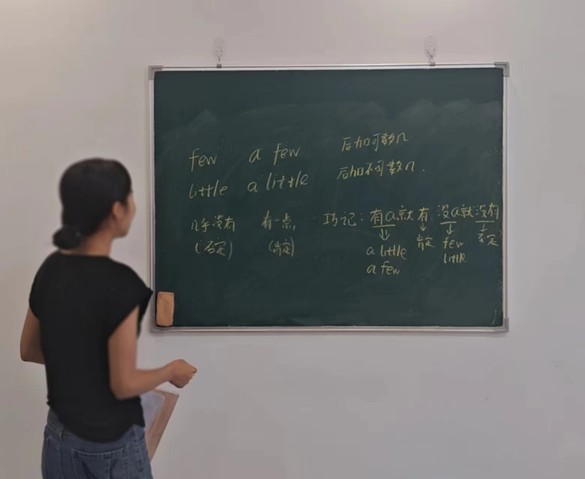 few a few 后加可数n
little a little 后加不可数n.
几乎没有 有一点 巧记:有a就有 没a就没有
(否定) (肯定) ↓ ↓肯定 ↓ ↓否定
a little few
a few little